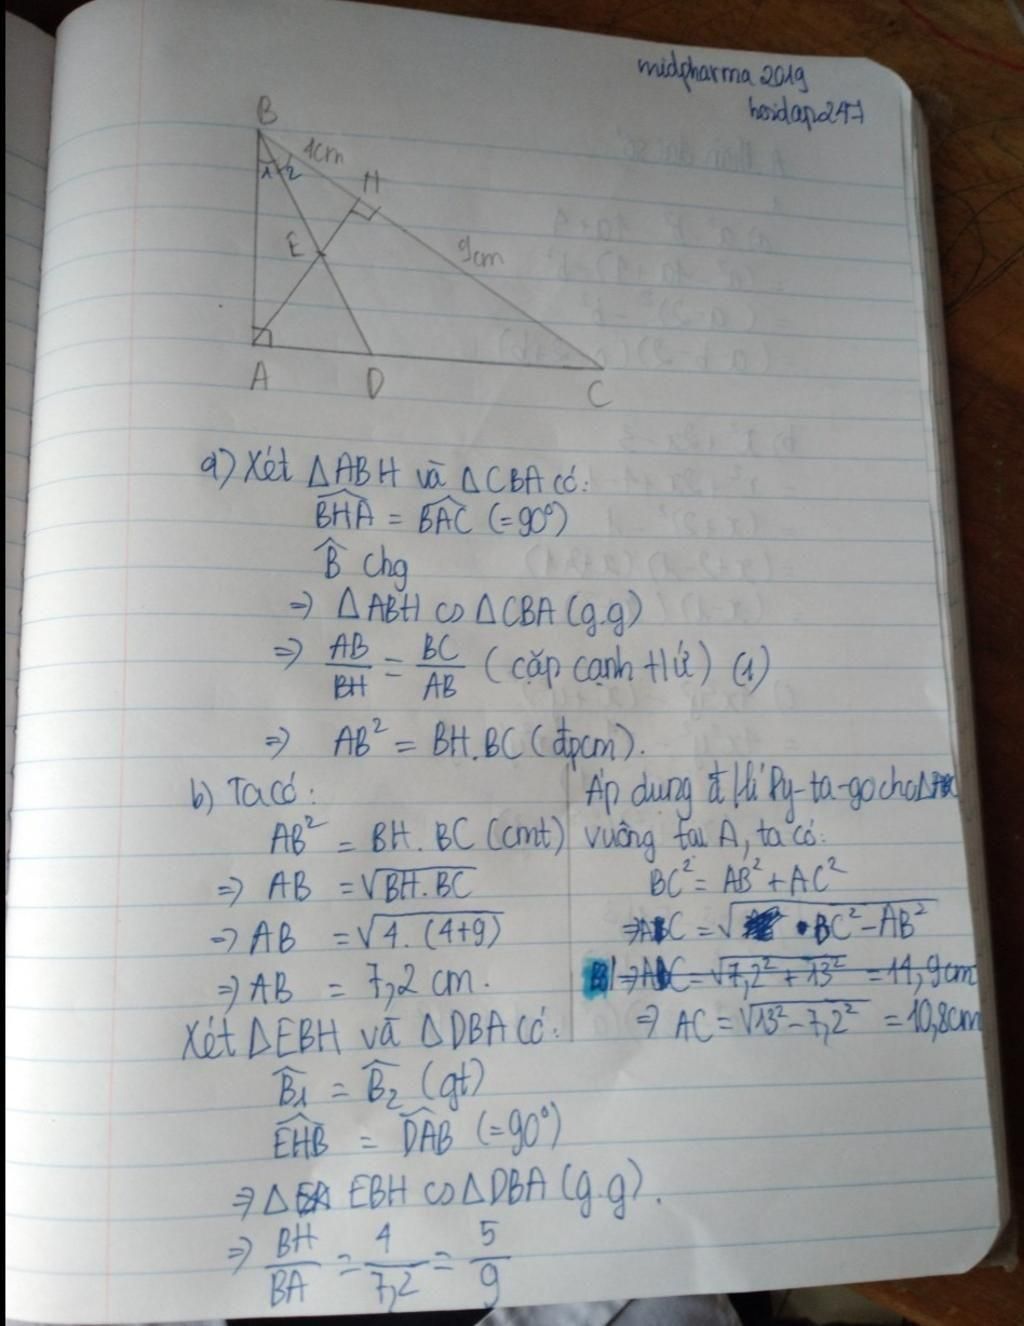 midpharma 2019
hoidap247
B
1 2
4cm
H
E
9cm
A
D
C
a) Xét ΔABH và ΔCBA có:
BHA = BAC (=90°)
B chg
=> ΔABH ∽ ΔCBA (g.g)
=> AB/BH = BC/AB (cặp cạnh tứ) (1)
=> AB² = BH.BC (đpcm).
b) Ta có:
AB² = BH.BC (cmt)
=> AB = √BH.BC
=> AB = √4.(4+9)
=> AB = 7,2 cm.
Áp dụng đ lí Py-ta-go cho Δ
vuông tại A, ta có:
BC² = AB² + AC²
=> AC = √BC² - AB²
=> AC = √7,2² + 13² = 14,9cm
=> AC = √13² - 7,2² = 10,8cm
Xét ΔEBH và ΔDBA có:
B1 = B2 (gt)
EHB = DAB (=90°)
=> Δ EBH ∽ ΔDBA (g.g).
=> BH/BA = 4/7,2 = 5/9